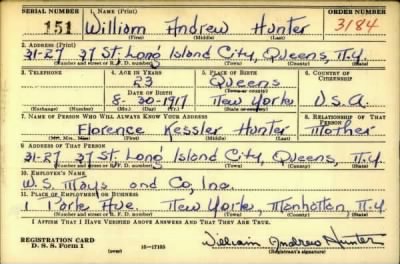 SERIAL NUMBER 1. NAME (Print) ORDER NUMBER
151 William Andrew Hunter 3184
(First) (Middle) (Last)
2. ADDRESS (Print)
31-27 37 St. Long Island City, Queens, N.Y.
(Number and street or R. F. D. number) (Town) (County) (State)
3. TELEPHONE 4. AGE IN YEARS 5. PLACE OF BIRTH 6. COUNTRY OF CITIZENSHIP
23 Queens
DATE OF BIRTH (Town or county)
8-30-1917 New York U.S.A.
(Exchange) (Number) (Mo.) (Day) (Yr.) (State or country)
7. NAME OF PERSON WHO WILL ALWAYS KNOW YOUR ADDRESS 8. RELATIONSHIP OF THAT PERSON
Florence Kessler Hunter Mother
(Mr., Mrs., Miss) (First) (Middle) (Last)
9. ADDRESS OF THAT PERSON
31-27 37 St. Long Island City, Queens, N.Y.
(Number and street or R. F. D. number) (Town) (County) (State)
10. EMPLOYER'S NAME
W.S. Mays and Co, Inc.
11. PLACE OF EMPLOYMENT OR BUSINESS
1 Park Ave. New York, Manhattan N.Y.
(Number and street or R. F. D. number) (Town) (County) (State)
I AFFIRM THAT I HAVE VERIFIED ABOVE ANSWERS AND THAT THEY ARE TRUE.
REGISTRATION CARD
D. S. S. Form 1 (over) 16-17105 William Andrew Hunter
(Registrant's signature)